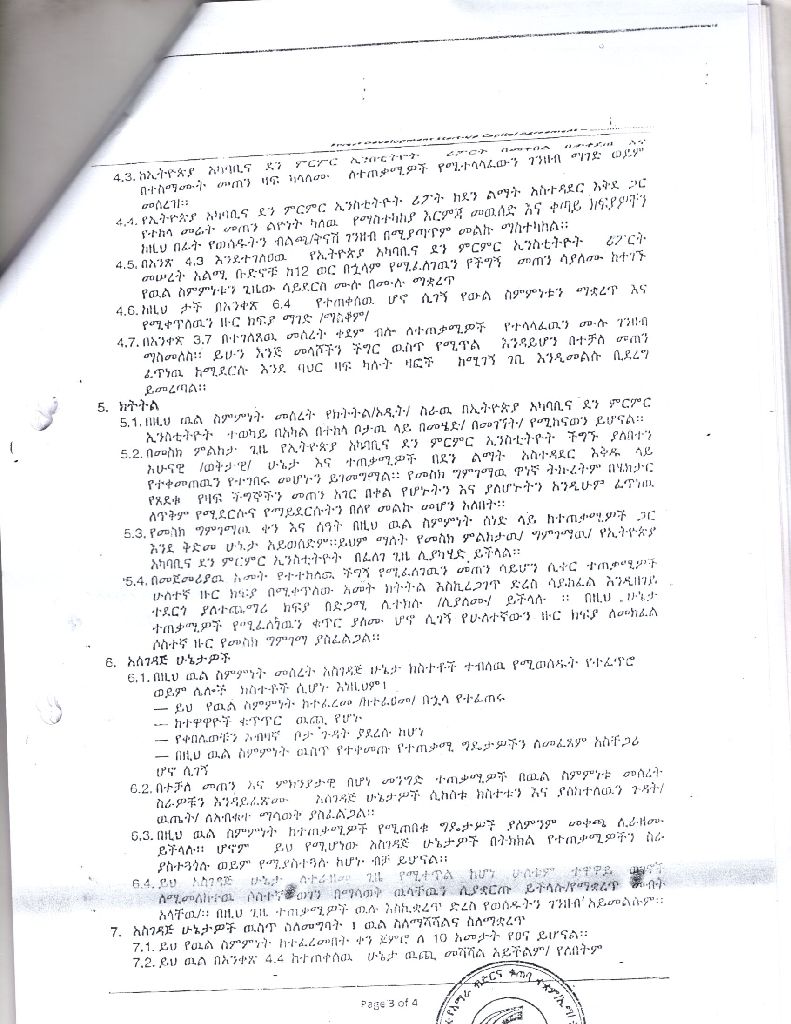 Forest Development Start-up Capital Agreement
4.3. ከኢትዮጵያ አካባቢና ደን ምርምር ኢንስቲትዩት ሪፖርት በመቀበል
በተስማሙት መጠን ዛፍ ካላለሙ ለተጠቃሚዎች የሚተላለፈውን ገንዘብ ማገድ ወይም
መሰረዝ፡፡
4.4. የኢትዮጵያ አካባቢና ደን ምርምር ኢንስቲትዩት ሪፖት ከደን ልማት አስተዳደር እቅድ ጋር
የተከላ መሬት መጠን ልዩነት ካለዉ የማስተካከያ እርምጃ መዉሰድ እና ቀጣይ ክፍያዎችን
ከዚህ በፊት የወሰዱትን ብልጫ/ትናሽ ገንዘብ በሚያጣጥም መልኩ ማስተካከል፡፡
4.5. በአንጽ 4.3 እንደተገለፀዉ የኢትዮጵያ አካባቢና ደን ምርምር ኢንስቲትዩት ሪፖርት
መሠረት አልሚ ቡድኖቹ ከ12 ወር በኋላም የሚፈለገዉን የችግኝ መጠን ሳያለሙ ከተገኙ
የዉል ስምምነቱን ጊዜው ሳይደርስ ሙሉ በሙሉ ማቋረጥ
4.6. ከዚህ ታች በአንቀጽ 6.4 የተጠቀሰዉ ሆኖ ሲገኝ የውል ስምምነቱን ማቋረጥ እና
የሚቀጥለዉን ዙር ክፍያ ማገድ /ማስቆም/
4.7. በአንቀጽ 3.7 በተገለጸዉ መሰረት ቀደም ብሎ ለተጠቃሚዎች የተላላፈዉን ሙሉ ገንዘብ
ማስመለስ፡፡ ይሁን እንጅ መላሾችን ችግር ዉስጥ የሚጥል እንዳይሆን በተቻለ መጠን
ፈጥነዉ ከሚደርሱ እንደ ባህር ዛፍ ካሉት ዛፎች ከሚገኝ ገቢ እንዲመልሱ ቢደረግ
ይመረጣል፡፡
5. ክትትል
5.1. በዚህ ዉል ስምምነት መሰረት የክትትል/ኦዲት/ ስራዉ በኢትዮጵያ አካባቢና ደን ምርምር
ኢንስቲትዩት ተወካይ በአካል በተከላ ቦታዉ ላይ በመሄድ/ በመገኘት/ የሚከናወን ይሆናል፡፡
5.2. በመስክ ምልከታ ጊዜ የኢትዮጵያ አካባቢና ደን ምርምር ኢንስቲትዩት ችግኙ ያለበትን
አሁናዊ /ወቅታዊ/ ሁኔታ እና ተጠቃሚዎች በደን ልማት አስተዳደር እቅዱ ላይ
የተቀመጠዉን የተገበሩ መሆኑን ይገመግማል፡፡ የመስክ ግምገማዉ ዋነኛ ትኩረትም በሄክታር
የጸደቁ የዛፍ ችግኞችን መጠን አገር በቀል የሆኑትን እና ያለሆኑትን እንዲሁም ፈጥነዉ
ለጥቅም የሚደርሱና የማይደርሱትን በለየ መልኩ መሆን አለበት፡፡
5.3. የመስክ ግምገማዉ ቀን እና ሰዓት በዚህ ዉል ስምምነት ሰነድ ላይ ከተጠቃሚዎች ጋር
እንደ ቅድመ ሁኔታ አይወሰድም፡፡ይህም ማለት የመስክ ምልከታዉ/ ግምገማዉ/ የኢትዮጵያ
አካባቢና ደን ምርምር ኢንስቲትዩት በፈለገ ጊዜ ሊያካሂድ ይችላል፡፡
5.4. በመጀመሪያዉ አመት የተተከለዉ ችግኝ የሚፈለገዉን መጠን ሳይሆን ሲቀር ተጠቃሚዎች
ሁለተኛ ዙር ክፍያ በሚቀጥለው አመት ክትትል እስኪረጋገጥ ድረስ ሳይከፈል እንዲዘገይ
ተደርጎ ያለተጨማሪ ክፍያ በድጋሚ ሊተክሉ /ሊያለሙ/ ይችላሉ ፡፡ በዚህ ሁኔታ
ተጠቃሚዎች የሚፈለገዉን ቁጥር ያለሙ ሆኖ ሲገኝ የሁለተኛውን ዙር ክፍያ ለመክፈል
ሶስተኛ ዙር የመስክ ግምገማ ያስፈልጋል፡፡
6. አስገዳጅ ሁኔታዎች
6.1. በዚህ ዉል ስምምነት መሰረት አስገዳጅ ሁኔታ ክስተቶች ተብለዉ የሚወሰዱት የተፈጥሮ
ወይም ሌሎች ክስተቶች ሲሆኑ እነዚህም፤
— ይህ የዉል ስምምነት ከተፈረመ /ከተፈፀመ/ በኋላ የተፈጠሩ
— ከተዋዋዮች ቁጥጥር ዉጪ የሆኑ
— የቀበሌዉን አብዛኛ ቦታ ጉዳት ያደረሰ ከሆነ
— በዚህ ዉል ስምምነት ዉስጥ የተቀመጡ የተጠቃሚ ግዴታዎችን ለመፈጸም አስቸጋሪ
ሆኖ ሲገኝ
6.2. በተቻለ መጠን እና ምክንያታዊ በሆነ መንግድ ተጠቃሚዎች በዉል ስምምነቱ መሰረት
ስራዎቹን እንዳይፈጽሙ አስገዳጅ ሁኔታዎች ሲከሰቱ ክስተቱን እና ያስከተለዉን ጉዳት/
ዉጤት/ ለአብቁተ ማሳወቅ ያስፈልጋል፡፡
6.3. በዚህ ዉል ስምምነት ከተጠቃሚዎች የሚጠበቁ ግዴታዎች ያለምንም መቀጫ ሊራዘሙ
ይችላሉ፡፡ ሆኖም ይህ የሚሆነው አስገዳጅ ሁኔታዎች በትክክል የተጠቃሚዎችን ስራ
ያስተጓጎሉ ወይም የሚያስተጓጉሉ ከሆኑ ብቻ ይሆናል፡፡
6.4. ይህ አስገዳጅ ሁኔታ ለተራዘመ ጊዜ የሚቀጥል ከሆነ ሁለቱም ተዋዋይ ወገኖች
ለሚመለከተዉ ሶስተኛ ወገን በማሳወቅ ዉላቸዉን ሊያቋርጡ ይችላሉ/የማቋረጥ መብት
አላቸዉ/፡፡ በዚህ ጊዜ ተጠቃሚዎች ዉሉ እስኪቋረጥ ድረስ የወሰዱትን ገንዘብ አይመልሱም፡፡
7. አስገዳጅ ሁኔታዎች ዉስጥ ስለመግባት ፤ ዉል ስለማሻሻልና ስለማቋረጥ
7.1. ይህ የዉል ስምምነት ከተፈረመበት ቀን ጀምሮ ለ 10 አመታት የፀና ይሆናል፡፡
7.2. ይህ ዉል በአንቀጽ 4.4 ከተጠቀሰዉ ሁኔታ ዉጪ መሻሻል አይችልም/ የለበትም
Page 3 of 4
የአማራ ብድርና ቁጠባ ተቋም